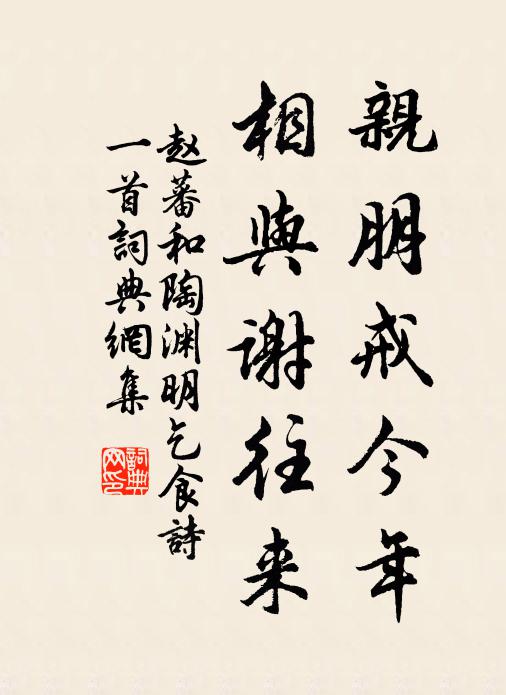 親朋戒今年
相與謝往来
赵蕃和陶渊明乞食詩
一首詞典網集
詞典
网印